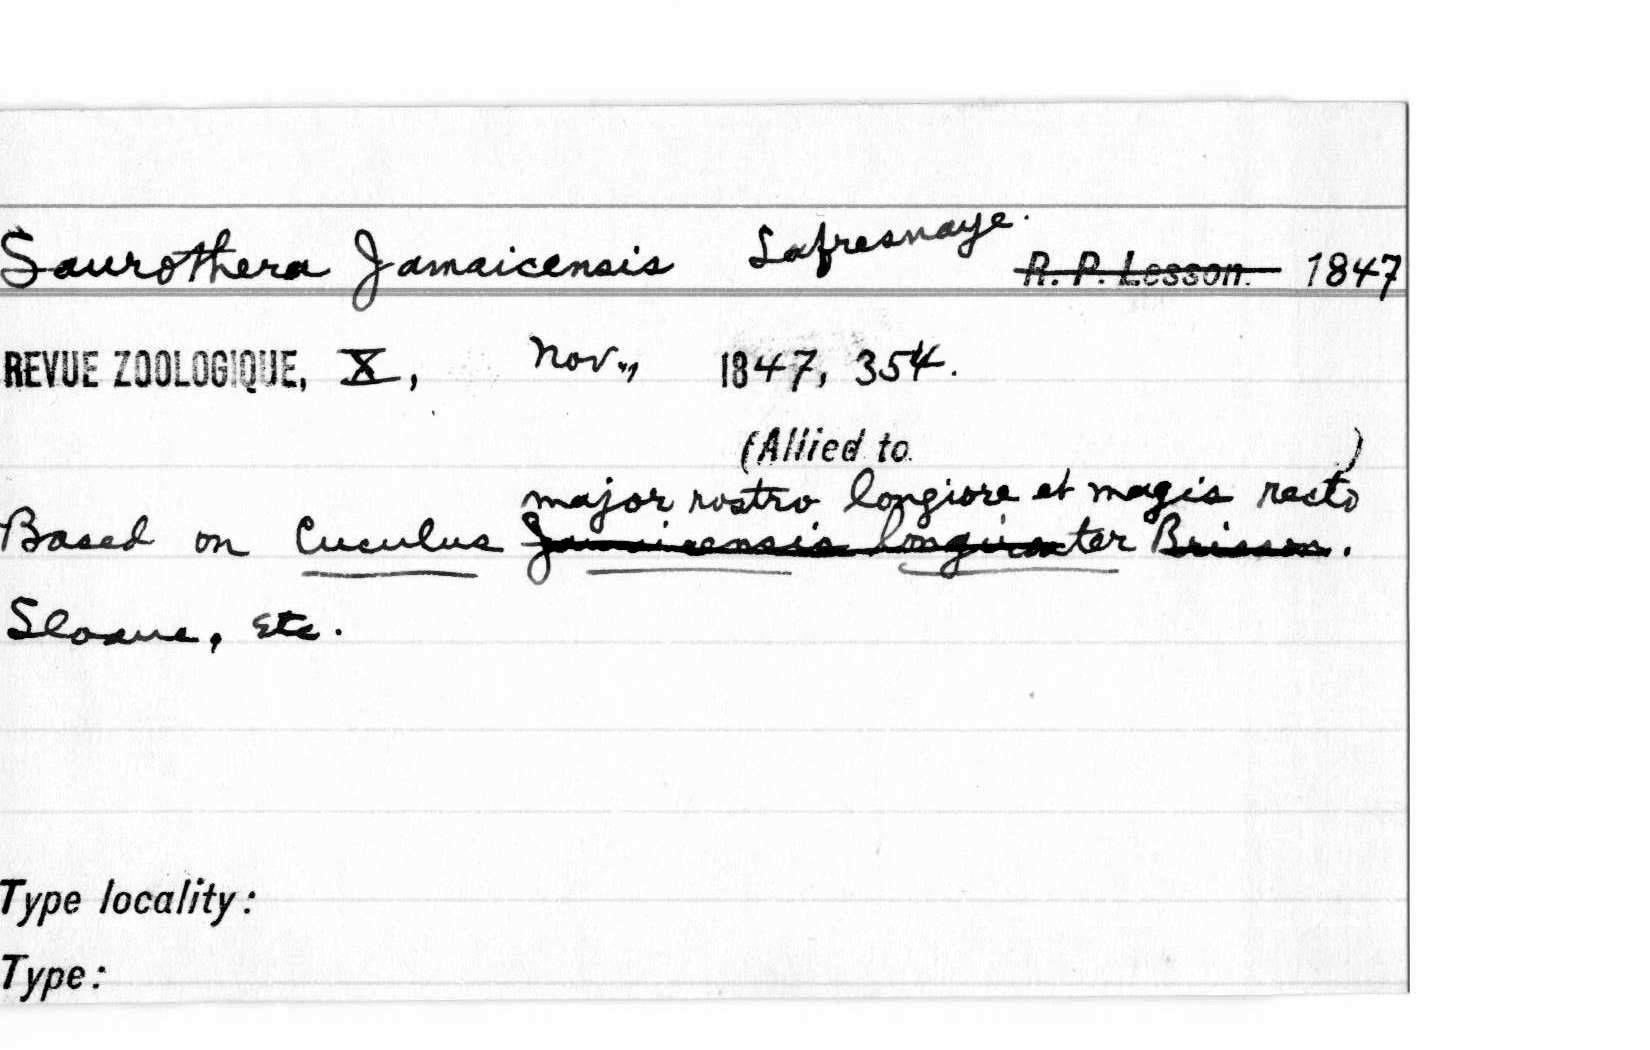 Saurothera Jamaicensis Lafresnaye. R. P. Lesson. 1847
REVUE ZOOLOGIQUE, X, Nov., 1847, 354.
(Allied to )
major rostro longiore et magis recto
Based on Cuculus Jamaicensis longiroster Brisson.
Sloane, Etc.
Type locality:
Type: